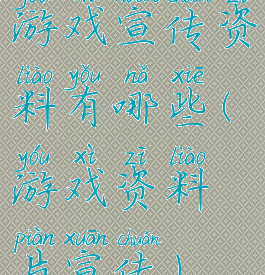 游戏宣传资
liào yǒu nǎ xiē
料有哪些(
yóu xì zī liào
游戏资料
piàn xuān chuán
片宣传)